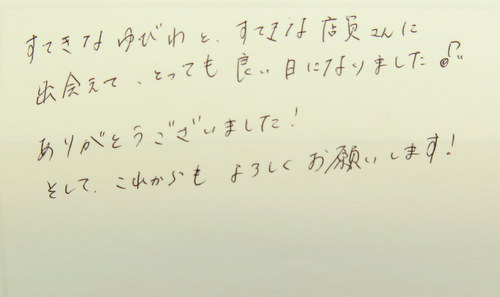 すてきなゆびわと、すてきな店員さんに
出会えて、とっても良い日になりました♪
ありがとうございました！
そして、これからもよろしくお願いします！